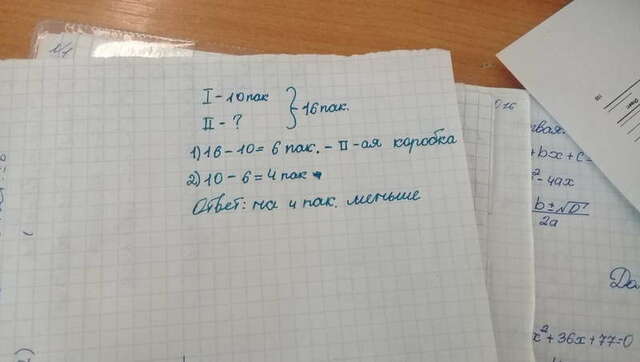 I - 10 пак
II - ?
} 16 пак.
1) 16 - 10 = 6 пак. - II-ая коробка
2) 10 - 6 = 4 пак
Ответ: на 4 пак. меньше
016
вая:
+bx+c=
²-4ac
b±√D
2a
x²+36x+77=0